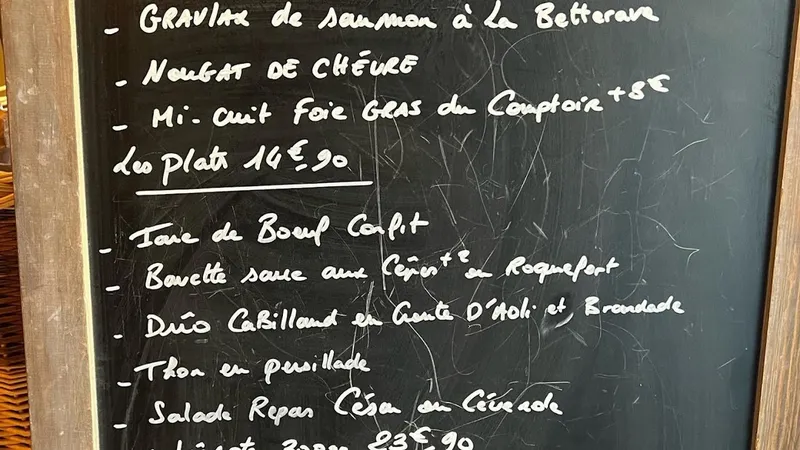 - GRAVLAX de saumon à La Betterave
- NOUGAT DE CHÈVRE
- Mi-cuit Foie GRAS du Comptoir +8€
Les plats 14€.90
- Joue de Boeuf Confit
- Bavette sauce aux Cèpes +2 ou Roquefort
- Duo CaBillaud en Croute D'Aoli et Brandade
- Thon en persillade
- Salade Repas César ou Cévenole
23€.90